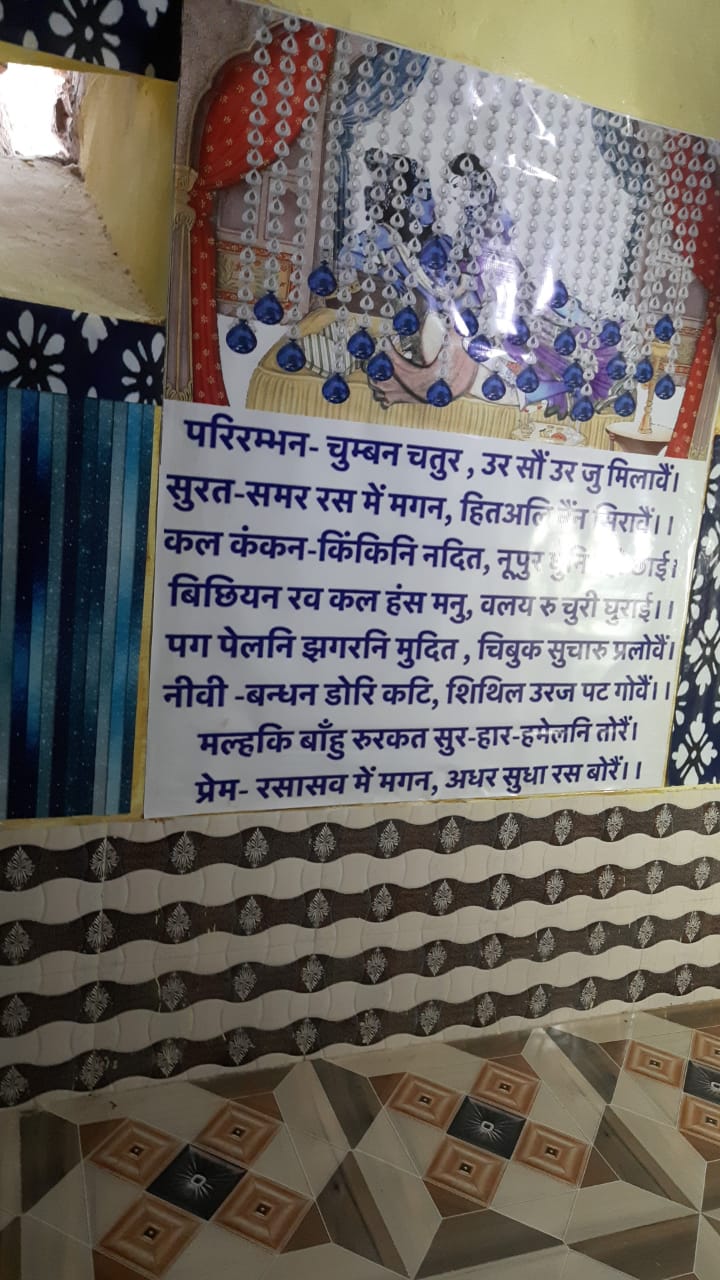 परिरम्भन- चुम्बन चतुर , उर सौं उर जु मिलावैं।
सुरत-समर रस में मगन, हितअलि रैंन सिरावैं।।
कल कंकन-किंकिनि नदित, नूपुर धुनि छाई।
बिछियन रव कल हंस मनु, वलय रु चुरी घुराई।।
पग पेलनि झगरनि मुदित , चिबुक सुचारु प्रलोवैं।
नीवी -बन्धन डोरि कटि, शिथिल उरज पट गोवैं।।
मल्हकि बाँहु रुरकत सुर-हार-हमेलनि तोरैं।
प्रेम- रसासव में मगन, अधर सुधा रस बोरैं।।